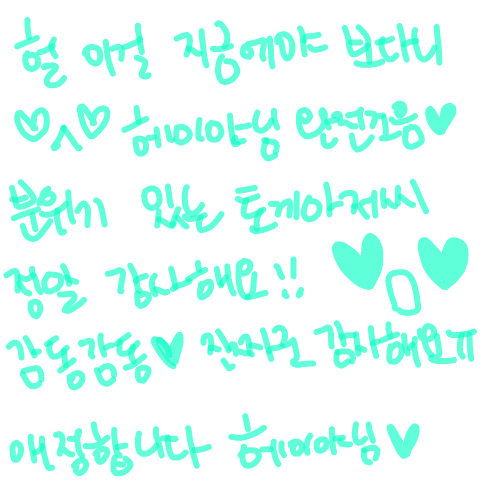 헐 이걸 지금에야 보다니
♡ㅅ♡ 헤이야님 완전 고음♥
분위기 있는 토끼아저씨
정말 감사해요!!
감동감동♥ 진짜로 감사해요ㅠ
애정합니다 헤이야님♥